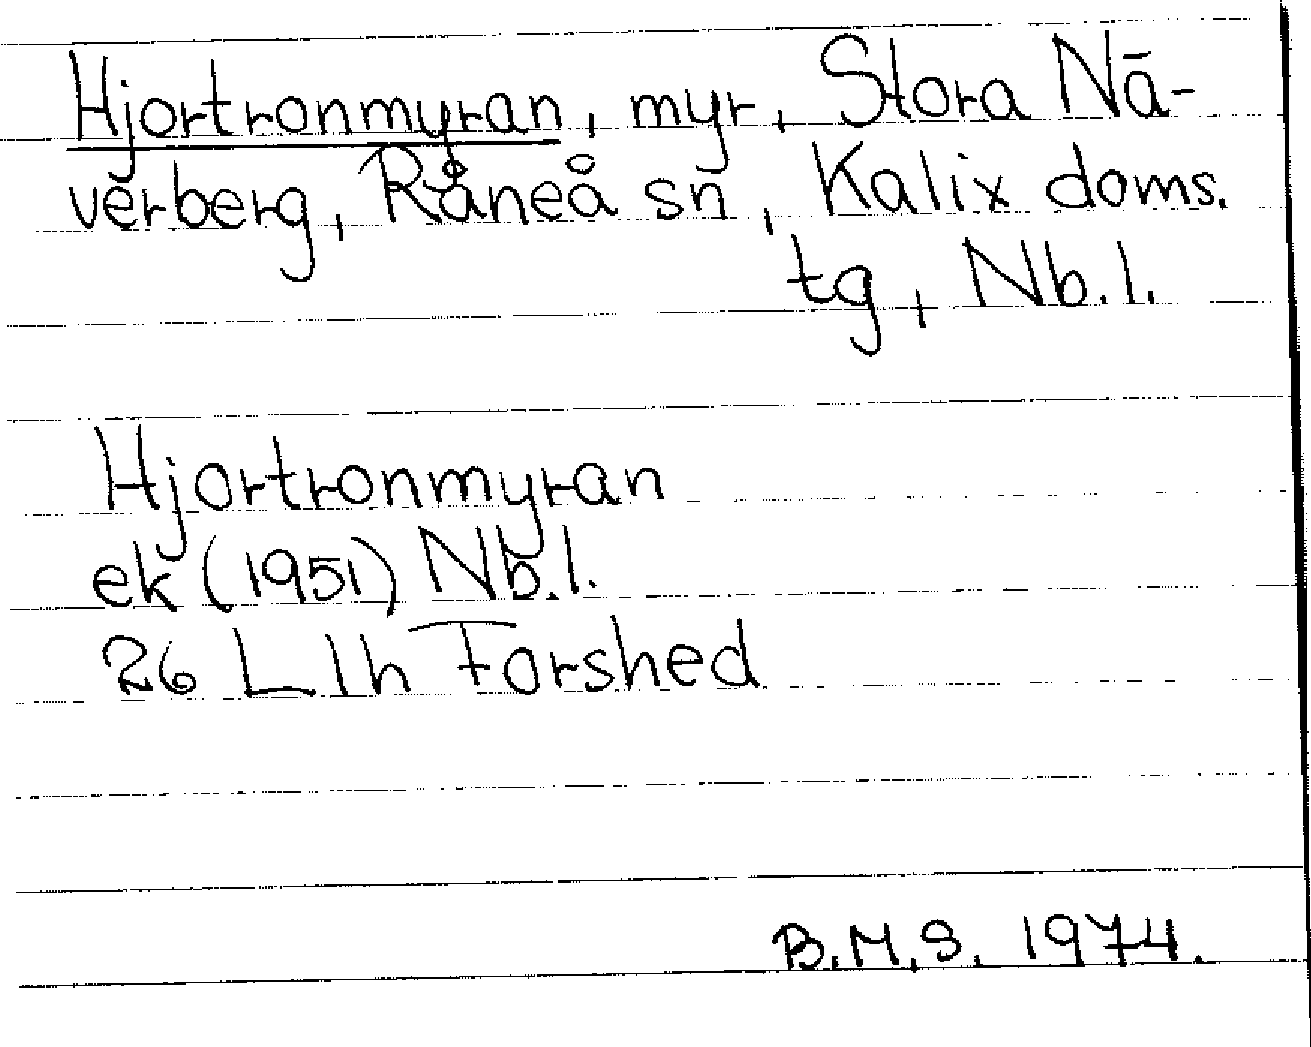 Hjortronmyran, myr, Stora Nä-
verberg, Råneå sn, Kalix doms.
tg, Nb.l.
Hjortronmyran
ek (1951) Nb.l.
26 L 1h Forshed
B.M.S. 1974.